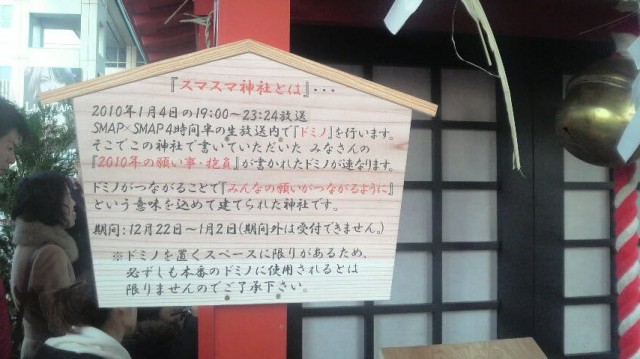 『スマスマ神社とは』･･･
2010年1月4日の19:00～23:24放送
SMAP×SMAP4時間半の生放送内で『ドミノ』を行います。
そこでこの神社で書いていただいた みなさんの
『2010年の願い事・抱負』が書かれたドミノが連なります。
ドミノがつながることで『みんなの願いがつながるように』
という意味を込めて建てられた神社です。
期間:12月22日～1月2日(期間外は受付できません。)
※ドミノを置くスペースに限りがあるため、
必ずしも本番のドミノに使用されるとは
限りませんのでご了承下さい。